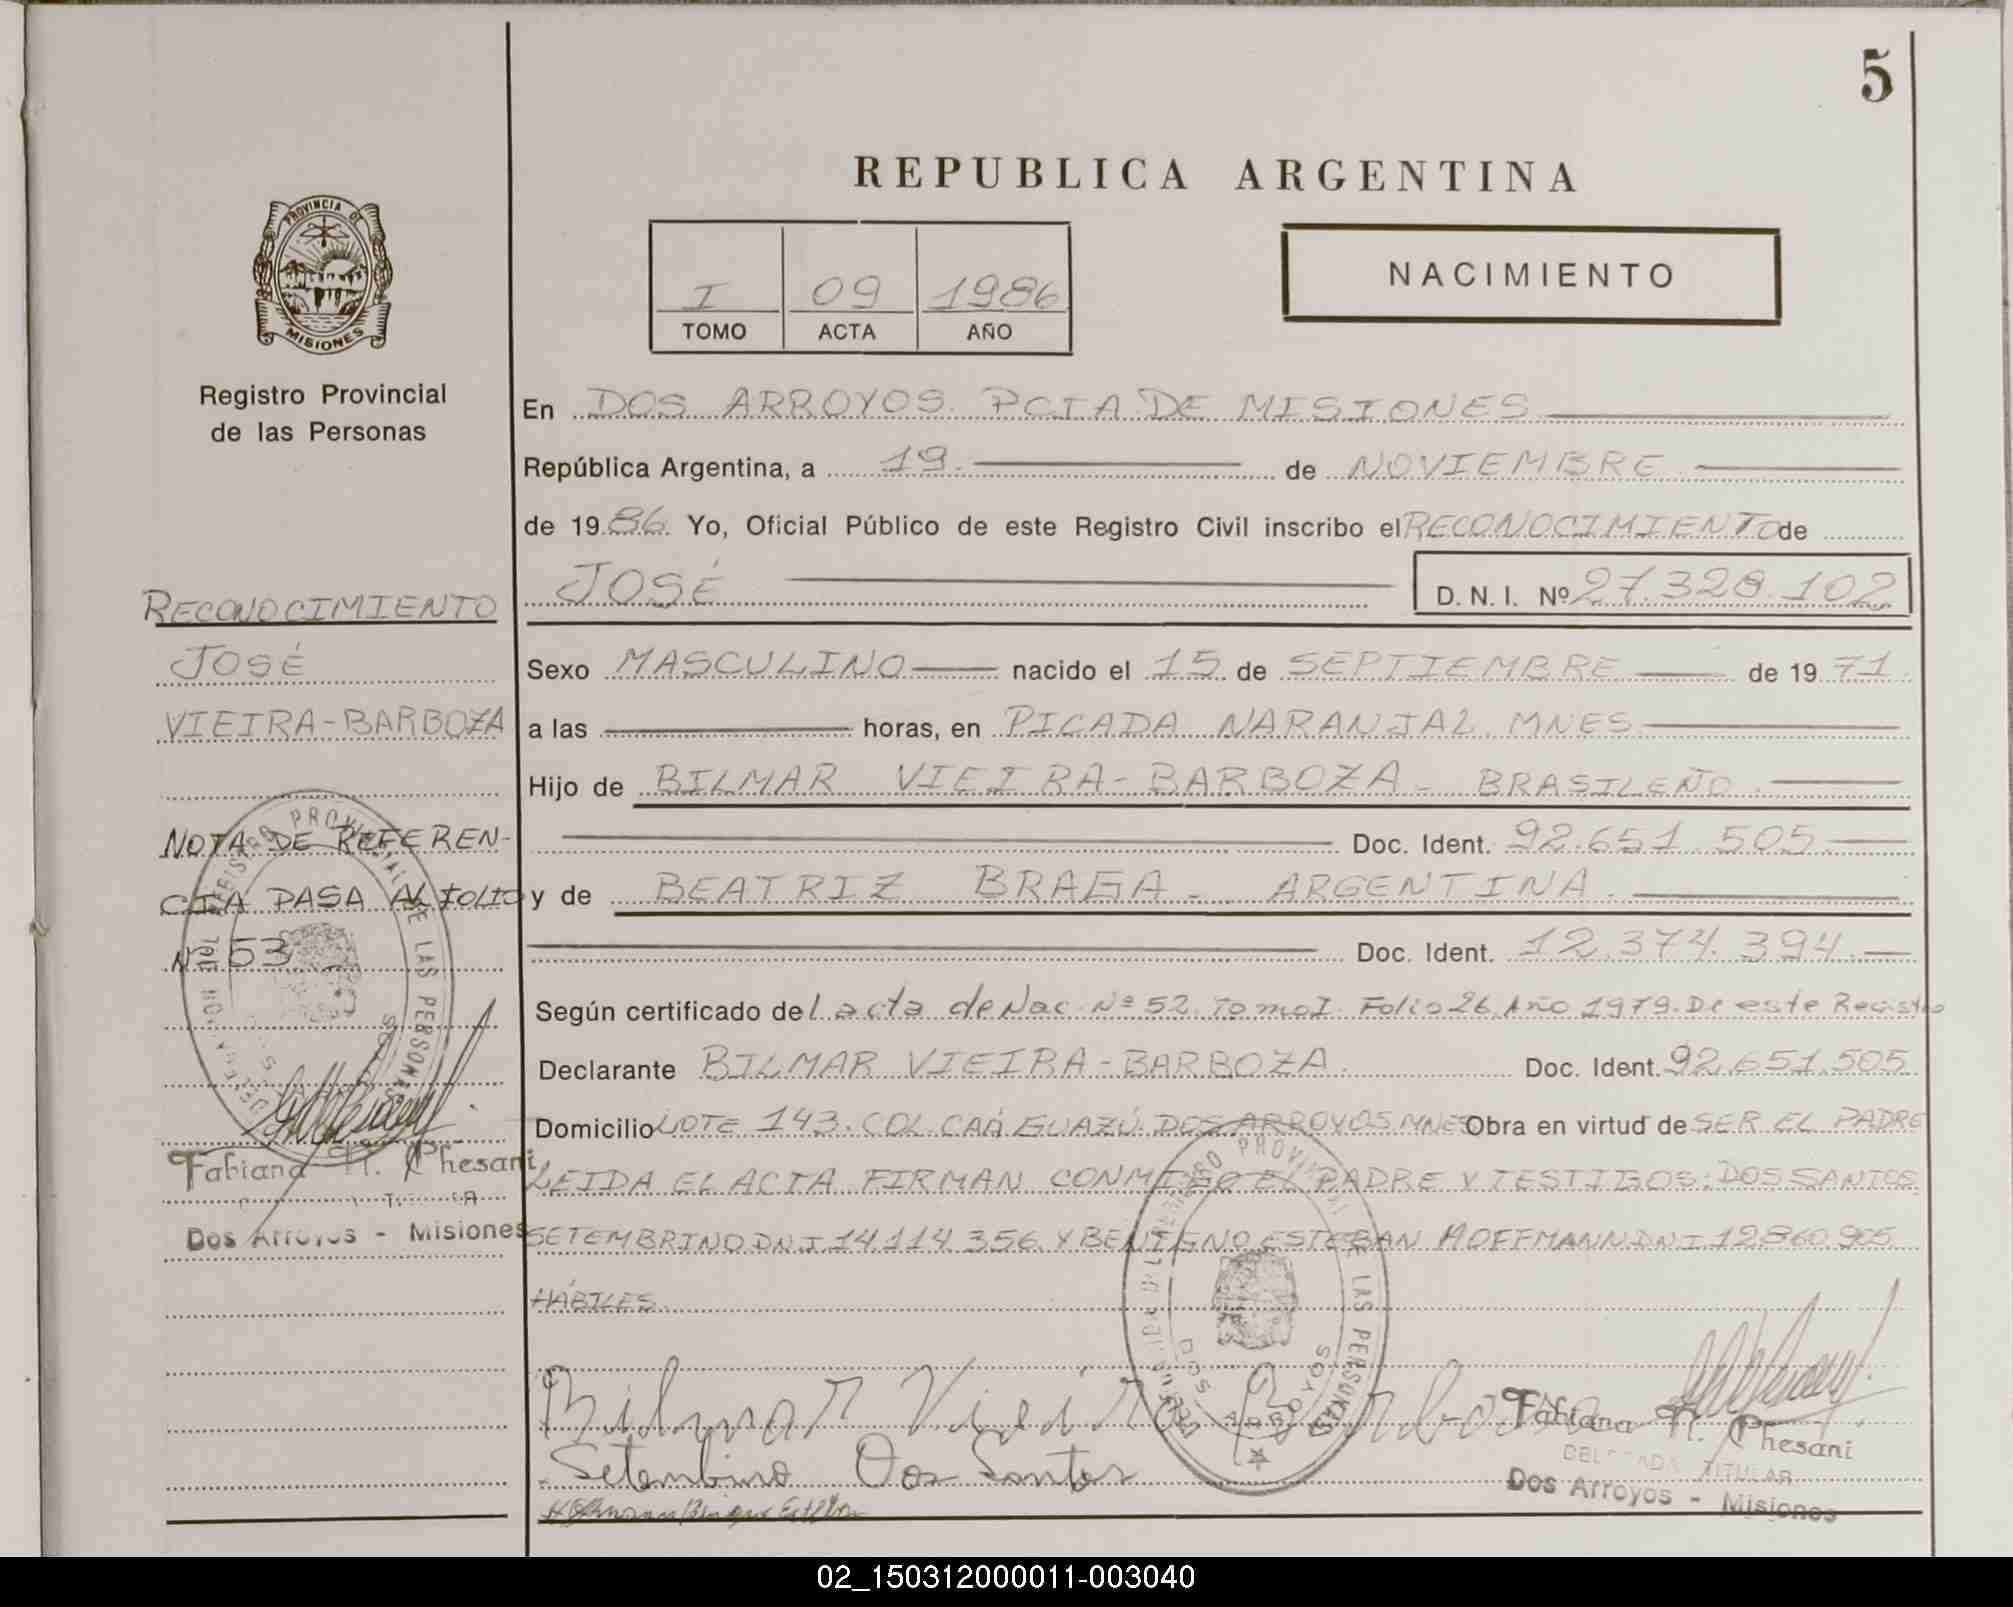 5
REPUBLICA ARGENTINA
PROVINCIA DE
MISIONES
Registro Provincial
de las Personas
I 09 1986
TOMO ACTA AÑO
NACIMIENTO
En DOS ARROYOS. PCIA. DE MISIONES
República Argentina, a 19 de NOVIEMBRE
de 1986. Yo, Oficial Público de este Registro Civil inscribo el RECONOCIMIENTO de
JOSÉ D. N. I. Nº 27.328.102
Sexo MASCULINO nacido el 15 de SEPTIEMBRE de 1971.
a las horas, en PICADA NARANJAL. MNES.
Hijo de BILMAR VIEIRA-BARBOZA - BRASILEÑO.
Doc. Ident. 92.651.505
y de BEATRIZ BRAGA - ARGENTINA.
Doc. Ident. 12.374.394.
Según certificado del acta de Nac. Nº 52. Tomo I. Folio 26. Año 1979. De este Registro
Declarante BILMAR VIEIRA-BARBOZA. Doc. Ident. 92.651.505
Domicilio LOTE 143. COL. CAÁ GUAZÚ. DOS ARROYOS MNES Obra en virtud de SER EL PADRE
LEIDA EL ACTA FIRMAN CONMIGO EL PADRE Y TESTIGOS: DOS SANTOS
SETEMBRINO DNI 14.114.356 Y BENIGNO ESTEBAN HOFFMANN DNI 12.860.905
HÁBILES.
Bilmar Vieira Barboza
Setembrino Dos Santos
Fabiana N. Chesani
DELEGADA TITULAR
Dos Arroyos - Misiones
RECONOCIMIENTO
JOSÉ
VIEIRA-BARBOZA
NOTA DE REFEREN-
CIA PASA AL FOLIO
Nº 53
Fabiana N. Chesani
Dos Arroyos - Misiones
02_150312000011-003040